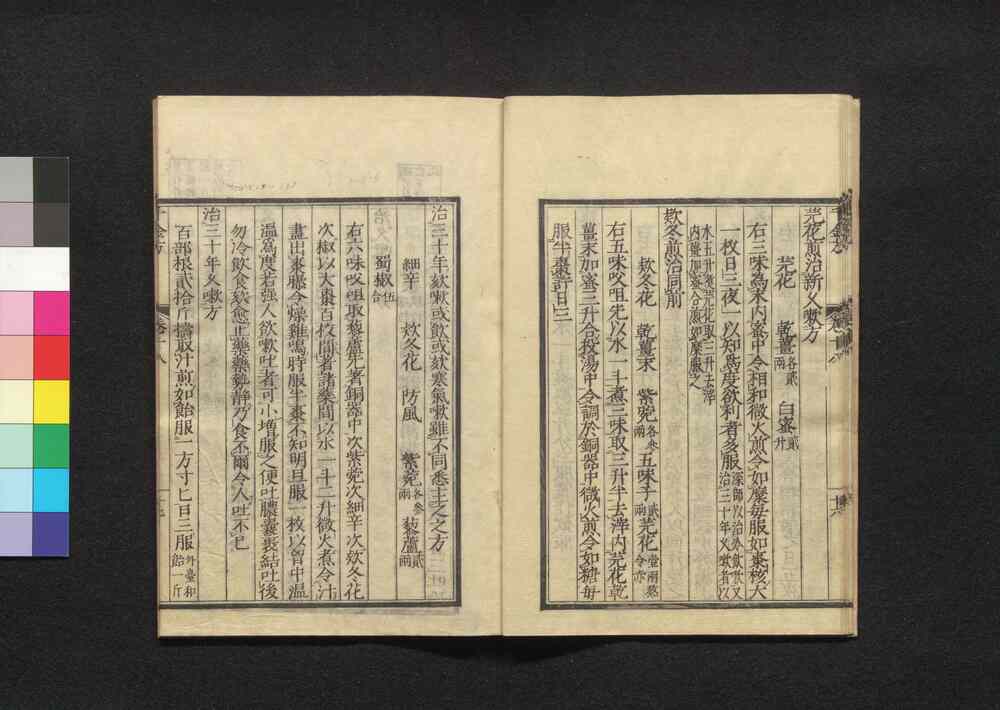 芫花煎治新久嗽方
芫花 乾薑各貳兩 白蜜貳升
右三味爲末內蜜中令相和微火煎令如糜每服如棗核大
一枚日三夜一以知爲度欲利者多服深師以治冷飲嗽又治三十年久嗽者以
水五升煮芫花取二升去滓內薑加蜜合煎如糜服之
欬冬煎治同前
欬冬花 乾薑末 紫菀各參兩 五味子貳兩 芫花壹兩熬令赤
右五味㕮咀先以水一斗煮三味取三升半去滓內芫花乾
薑末加蜜三升合投湯中令調於銅器中微火煎令如糖每
服半棗許日三
治三十年欬嗽或飲或欬寒氣嗽雖不同悉主之之方
細辛 欬冬花 防風 紫菀各參兩 藜蘆貳兩
蜀椒伍合
右六味㕮咀取藜蘆先著銅器中次紫菀次細辛次欬冬花
次椒以大棗百枚間著諸藥間以水一斗二升微火煮令汁
盡出棗曝令燥雞鳴時服半棗不知明旦服一枚以胷中溫
溫爲度若強人欲嗽吐者可小增服之便吐膿囊裹結吐後
勿冷飲食欬愈止藥藥勢靜乃食不爾令人吐不已
治三十年久嗽方
百部根貳拾斤擣取汁煎如飴服一方寸匕日三服外臺和飴一斤